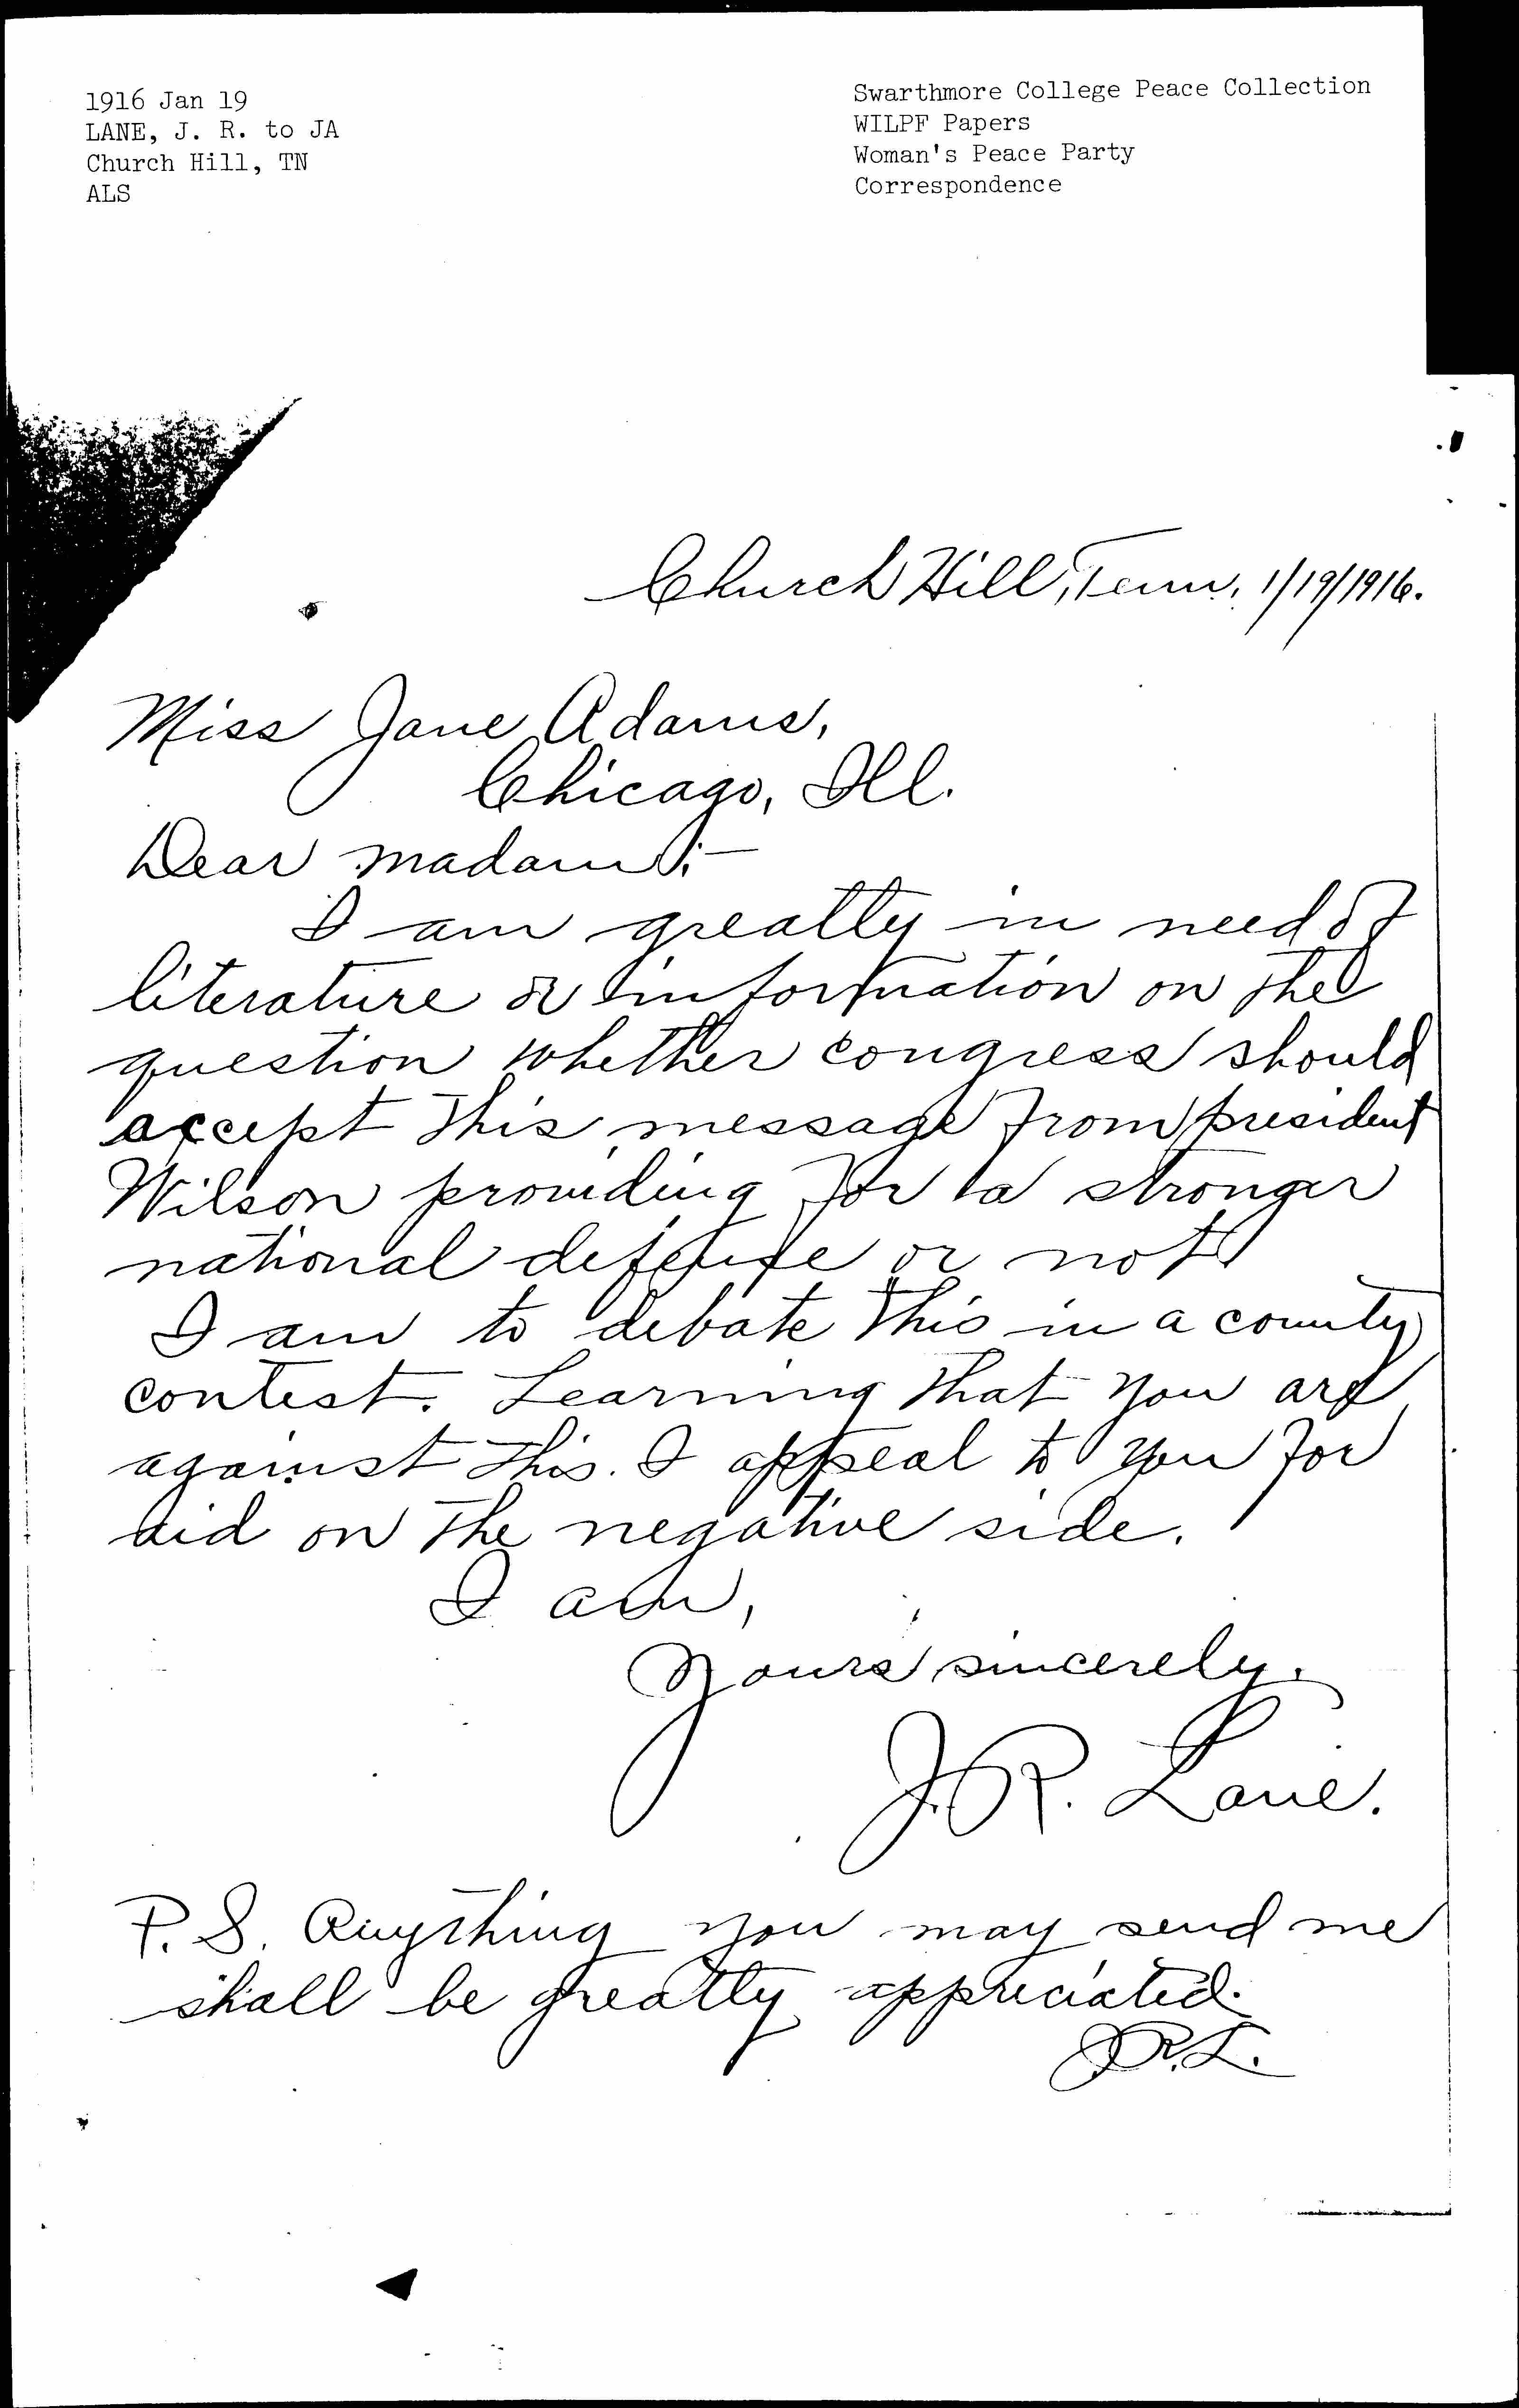 1916 Jan 19
LANE, J. R. to JA
Church Hill, TN
ALS
Swarthmore College Peace Collection
WILPF Papers
Woman's Peace Party
Correspondence
Church Hill, Tenn, 1/19/1916.
Miss Jane Adams,
Chicago, Ill.
Dear madam:—
I am greatly in need of
literature or information on the
question whether congress should
accept this message from president
Wilson providing for a stronger
national defense or not
I am to debate this in a county
contest. Learning that you are
against this. I appeal to you for
aid on the negative side.
I am,
Yours sincerely.
J.R. Lane.
P.S. Anything you may send me
shall be greatly appreciated.
J.R.L.